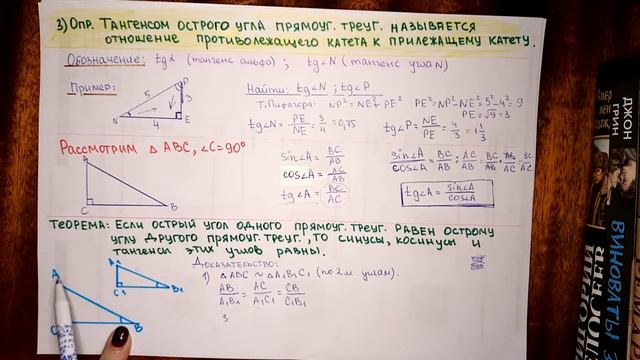 3) Опр. Тангенсом острого угла прямоуг. треуг. называется
отношение противолежащего катета к прилежащему катету.
Обозначение: tgα (тангенс альфа) ; tg∠N (тангенс угла N)
Пример:
5
P
3
N
4
E
Найти: tg∠N ; tg∠P
Т.Пифагора: NP²=NE²+PE² PE²=NP²-NE²=5²-4²=9
PE=√9=3
tg∠N = PE/NE = 3/4 = 0,75 tg∠P = NE/PE = 4/3 = 1 1/3
Рассмотрим △ ABC, ∠C=90°
A
C
B
sin∠A = BC/AB
cos∠A = AC/AB
tg∠A = BC/AC
sin∠A/cos∠A = BC/AB : AC/AB = BC/AB · AB/AC = BC/AC
tg∠A = sin∠A/cos∠A
Теорема: Если острый угол одного прямоуг. треуг. равен острому
углу другого прямоуг. треуг., то синусы, косинусы и
тангенсы этих углов равны.
Доказательство:
1) △ABC ~ △A₁B₁C₁ (по 2м углам).
AB/A₁B₁ = AC/A₁C₁ = CB/C₁B₁
A
B
A₁
C₁
B₁
ДЖОН
ГРИН
ВИНОВАТЫ